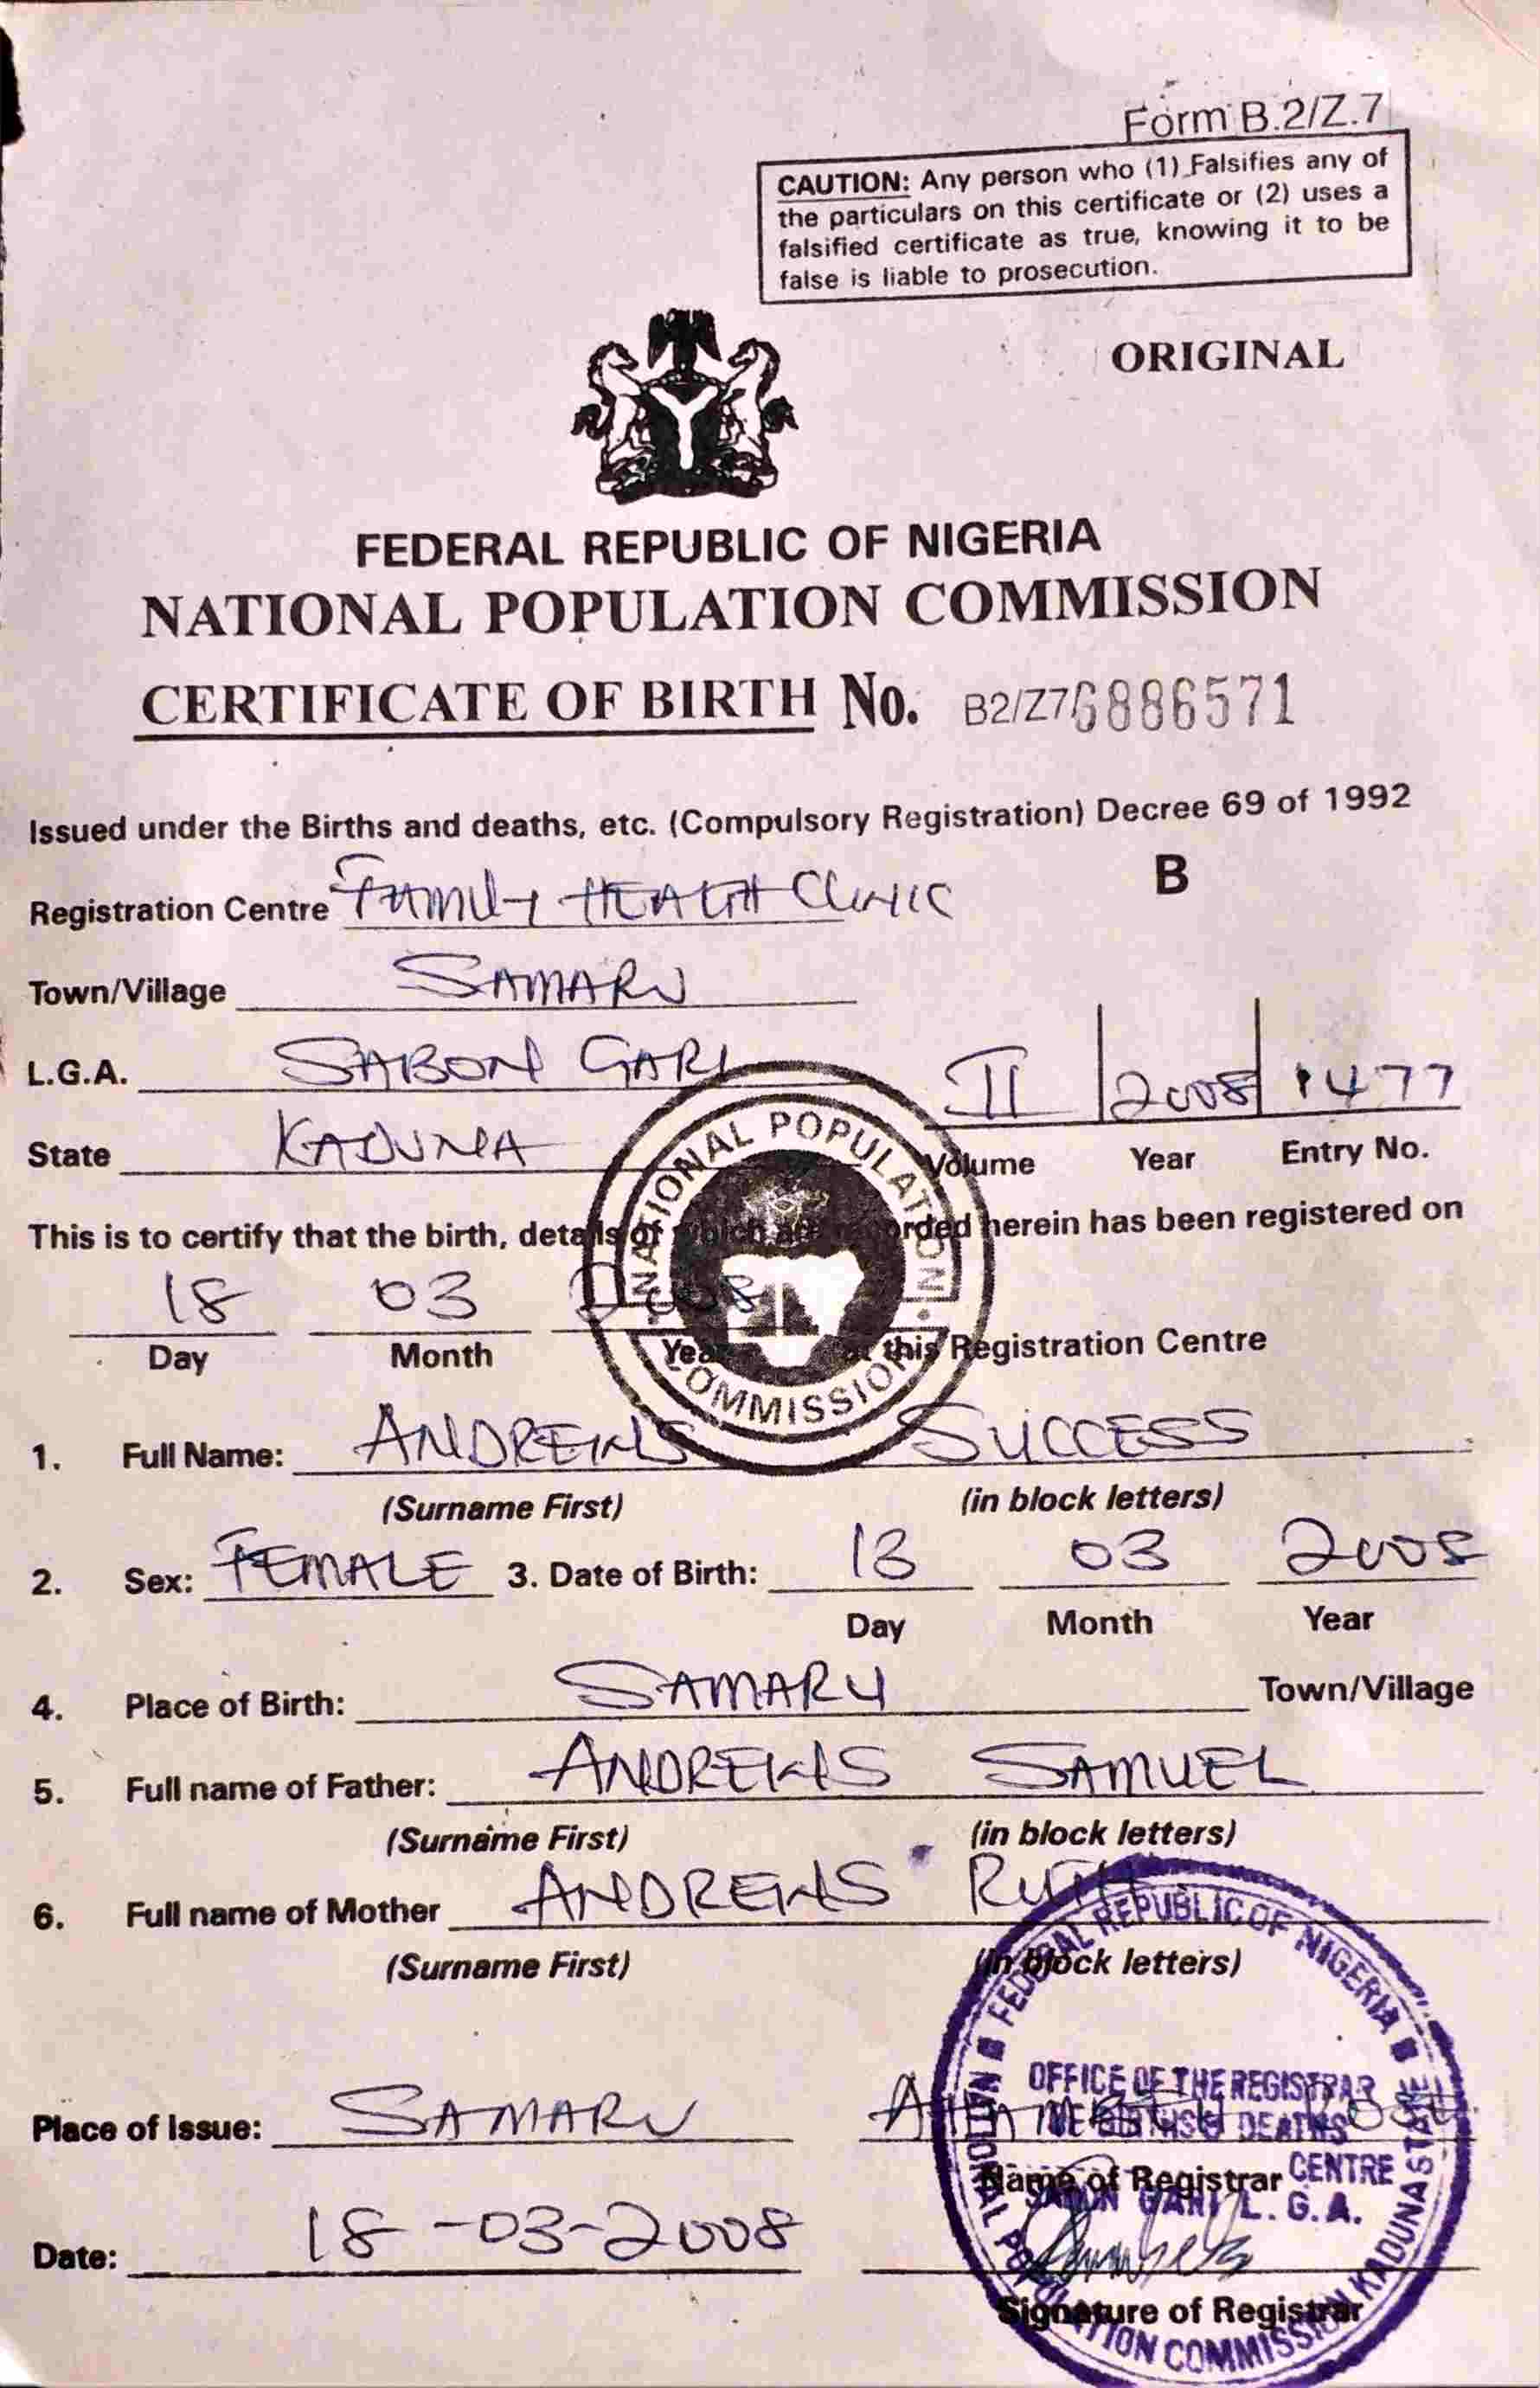 Form B.2/Z.7
CAUTION: Any person who (1) Falsifies any of
the particulars on this certificate or (2) uses a
falsified certificate as true, knowing it to be
false is liable to prosecution.
ORIGINAL
FEDERAL REPUBLIC OF NIGERIA
NATIONAL POPULATION COMMISSION
CERTIFICATE OF BIRTH No. B2/Z7 6886571
Issued under the Births and deaths, etc. (Compulsory Registration) Decree 69 of 1992
B
Registration Centre FAMILY HEALTH CLINIC
Town/Village SAMARU
L.G.A. SABON GARI
II 2008 1477
State KADUNA
Volume Year Entry No.
NATIONAL POPULATION COMMISSION
This is to certify that the birth, details of which are recorded herein has been registered on
18 03 2008
Day Month Year at this Registration Centre
1. Full Name: ANDREWS SUCCESS
(Surname First) (in block letters)
2. Sex: FEMALE 3. Date of Birth: 13 03 2008
Day Month Year
4. Place of Birth: SAMARU Town/Village
5. Full name of Father: ANDREWS SAMUEL
(Surname First) (in block letters)
6. Full name of Mother ANDREWS RUTH
(Surname First) (in block letters)
FEDERAL REPUBLIC OF NIGERIA
OFFICE OF THE REGISTRAR
OF BIRTHS & DEATHS
CENTRE
SABON GARI L.G.A.
NATIONAL POPULATION COMMISSION KADUNA STATE
Place of Issue: SAMARU
Name of Registrar
Date: 18-03-2008
Signature of Registrar